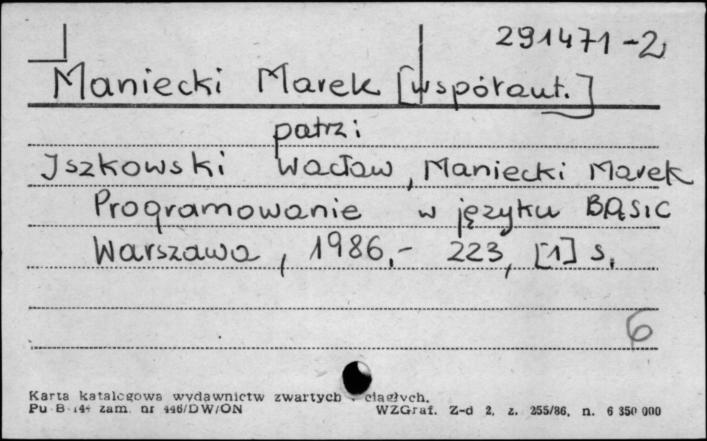 291471-2
Maniecki Marek [współaut.]
patrz:
Iszkowski Wacław, Maniecki Marek
Programowanie w języku BASIC
Warszawa, 1986,- 223, [1] s.
6
Karta katalogowa wydawnictw zwartych i ciągłych.
Pu B-144 zam. nr 446/DW/ON WZGraf. Z-d 2, z. 255/86, n. 6 350 000